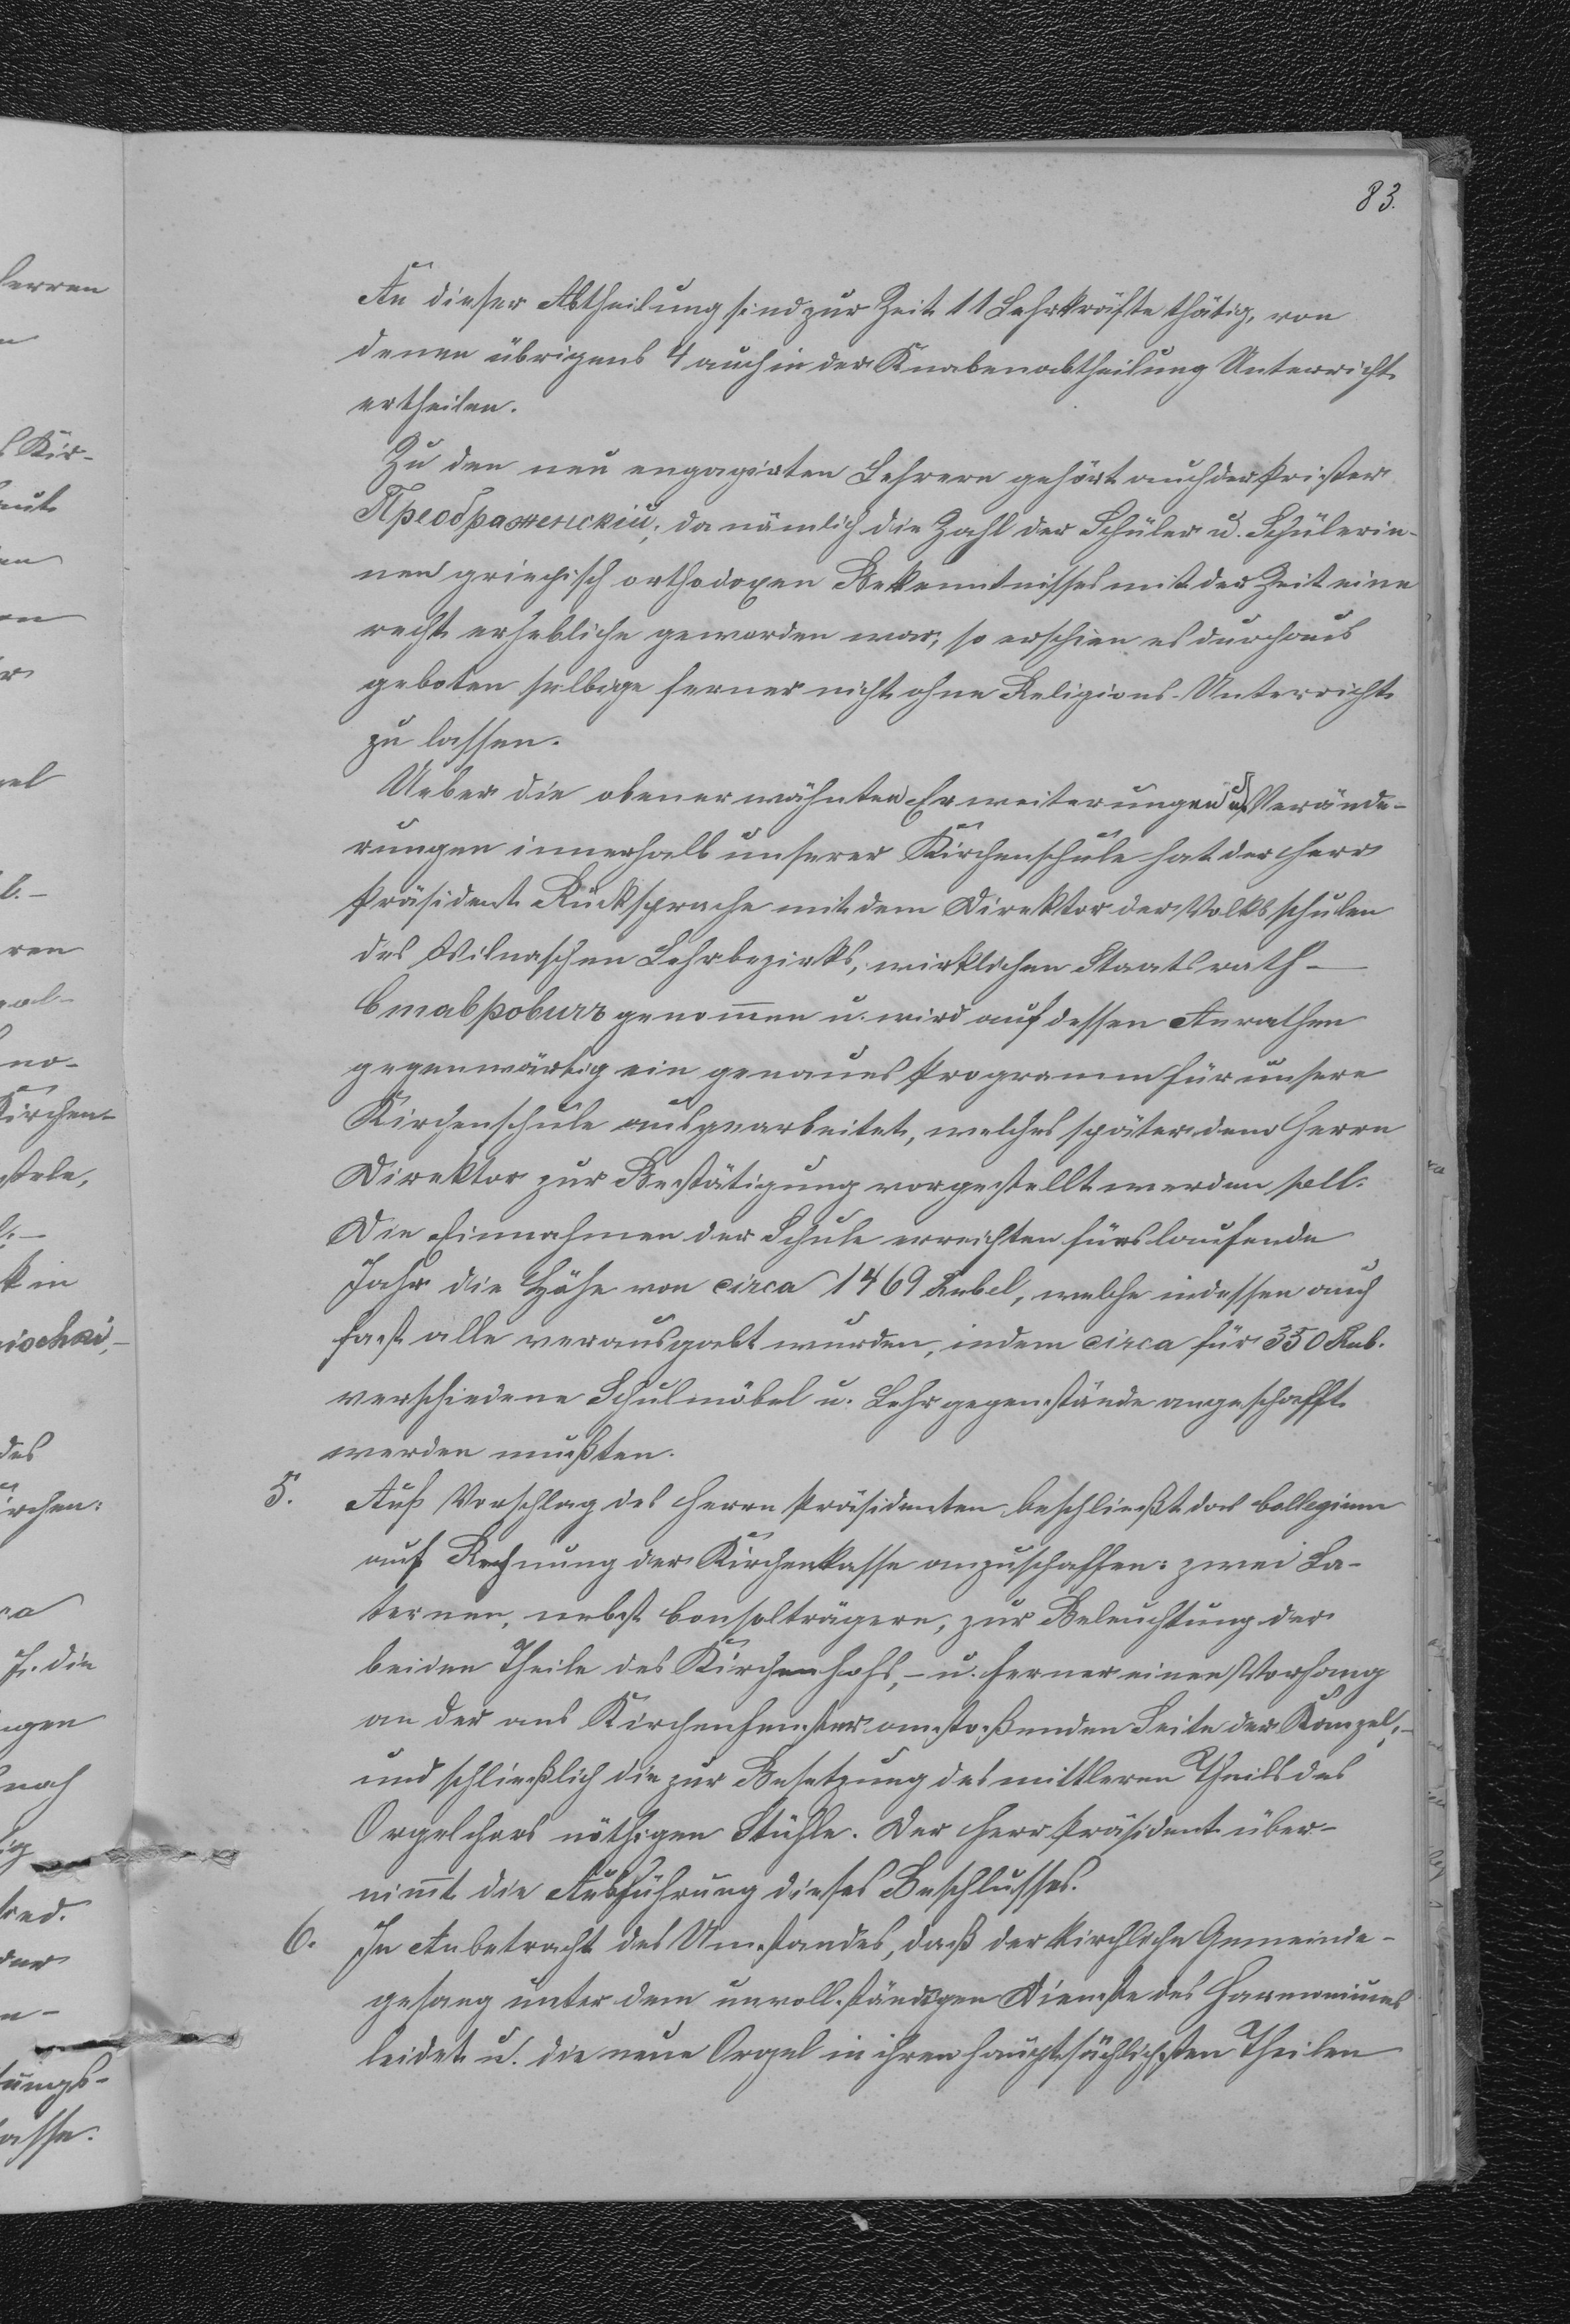 83.
An dieser Abtheilung sind zur Zeit 11 Lehrkräfte thätig, von
denen übrigens 4 auch in der Knabenabtheilung Unterricht
ertheilen.
Zu den neu engagirten Lehrern gehört auch der Priester
Преображенскій; da nämlich die Zahl der Schüler u. Schülerin-
nen griechisch orthodoxen Bekenntnisses mit der Zeit eine
recht erhebliche geworden war, so erschien es durchaus
geboten selbige ferner nicht ohne Religions-Unterricht
zu lassen.
Ueber die obenerwähnten Erweiterungen u. Verände-
rungen innerhalb unserer Kirchenschule hat der Herr
Präsident Rücksprache mit dem Direktor der Volksschulen
des Wilnaschen Lehrbezirks, wirklichen Staatsrath –
Ставровичъ genommen u. wird auf dessen Anrathen
gegenwärtig ein genaues Programm für unsere
Kirchenschule ausgearbeitet, welches später dem Herrn
Direktor zur Bestätigung vorgestellt werden soll.
Die Einnahmen der Schule erreichten fürs laufende
Jahr die Höhe von circa 1469 Rubel, welche indessen auch
fast alle verausgabt wurden, indem circa für 350 Rub.
verschiedene Schulmöbel u. Lehrgegenstände angeschafft
werden mußten.
5. Auf Vorschlag des Herrn Präsidenten beschließt das Collegium
auf Rechnung der Kirchenkasse anzuschaffen: zwei La-
ternen, nebst Consolträgern, zur Beleuchtung der
beiden Theile des Kirchenhofs, – u. ferner einen Vorhang
an der ans Kirchenfenster anstoßenden Seite der Kanzel; –
und schließlich die zur Besetzung des mittleren Theils des
Orgelchors nöthigen Stühle. Der Herr Präsident über-
nimmt die Ausführung dieses Beschlusses.
6. In Anbetracht des Umstandes, daß der kirchliche Gemeinde-
gesang unter dem unvollständigen Dienste des Harmoniums
leidet u. die neue Orgel in ihren hauptsächlichsten Theilen